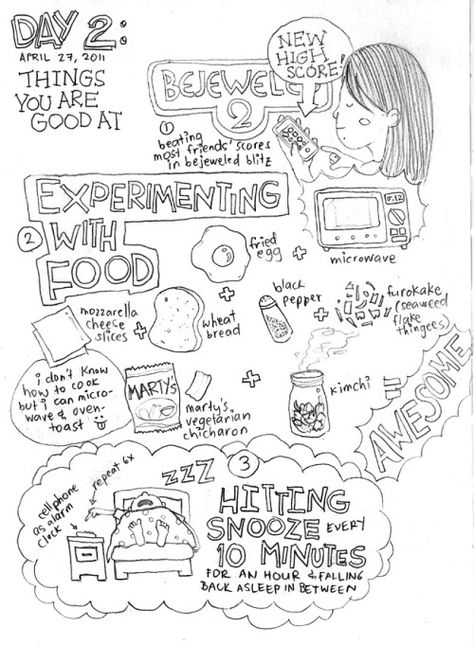 DAY 2:
APRIL 27, 2011
THINGS
YOU ARE
GOOD AT
NEW
HIGH
SCORE!
BEJEWELED
2
1
beating
most friends' scores
in bejeweled blitz
EXPERIMENTING
2 WITH
FOOD
fried
egg
microwave
mozzarella
cheese
slices
+
wheat
bread
+
black
pepper
+
furokake
(seaweed
flake
thingees)
i don't know
how to cook
but i can micro-
wave & oven-
toast
MARTY'S
marty's
vegetarian
chicharon
+
kimchi
=
AWESOME
3
ZZZ
repeat 6x
cellphone
as alarm
clock
HITTING
SNOOZE EVERY
10 MINUTES
FOR AN HOUR & FALLING
BACK ASLEEP IN BETWEEN